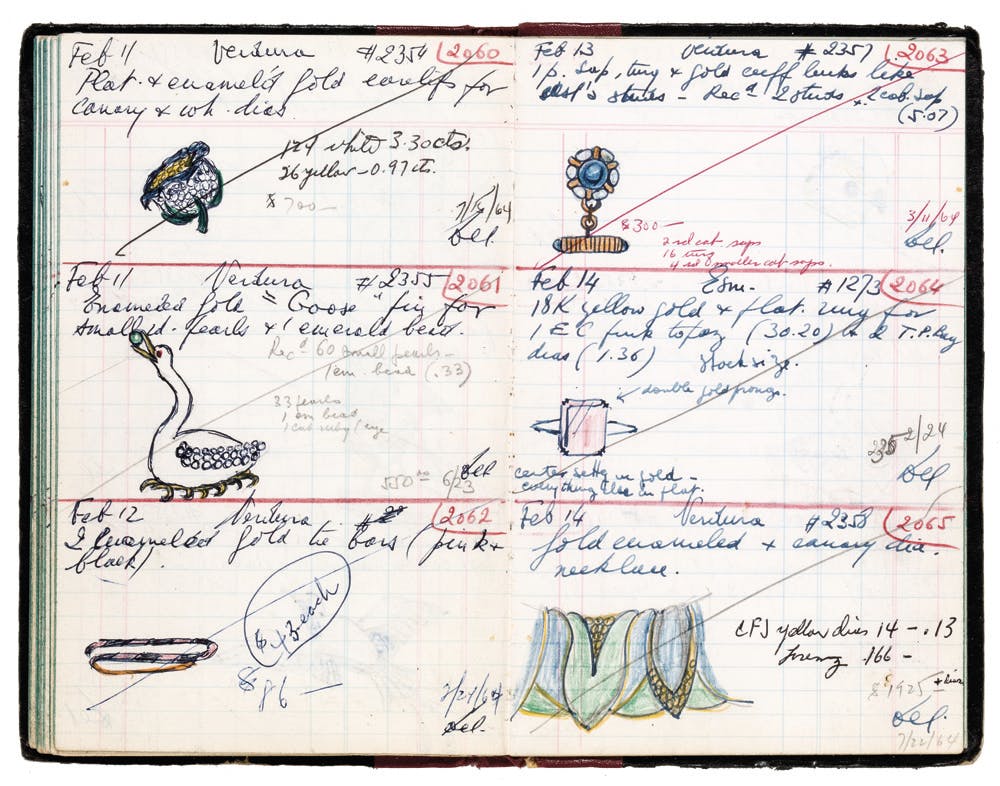 Feb 11 Ventura #2354 2060
Plat. & enamel'd gold earclips for
canary & wh. dias.
129 white 3.30cts.
26 yellow - 0.97 cts.
$700-
7/15/64
Del.
Feb 11 Ventura #2355 2061
Enameled gold "Goose" pin for
small d. pearls & 1 emerald bead.
Recd 60 small pearls -
1 em. bead (.33)
33 pearls
1 em bead
1 cab ruby/eye
550.00 6/23
Del
Feb 12 Ventura # 2062
2 enameled gold tie bars (pink &
black).
$43 each
$86 -
2/27/64
Del.
Feb 13 Ventura #2357 2063
1 p. sap, turq & gold cuff links like
studs - Recd 2 studs & 2 cab. sap
(5.07)
$300-
2 rd cab saps
16 turq
4 rd smaller cab saps.
3/11/64
Del.
Feb 14 Esm. #1273 2064
18K yellow gold & plat. ring for
1 EC pink topaz (30.20) & 2 T.P. Bag
dias (1.36) stock size.
double gold prongs.
2/24
Del
center setting in gold -
everything else in plat.
Feb 14 Ventura #2358 2065
Gold enameled & canary dia.
necklace.
CFJ yellow dias 14 - .13
166 -
$1925 + dias
Del.
7/22/64